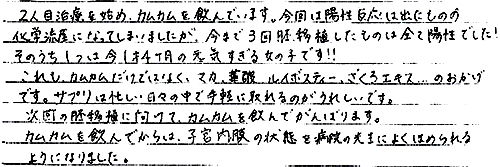 2人目治療を始め、カムカムを飲んでいます。今回は陽性反応は出たものの
化学流産になってしまいましたが、今まで3回胚移植したものは全て陽性でした!
そのうち1つは今1才4ケ月の元気すぎる女の子です!!
これも、カムカムだけではなく、マカ、葉酸、ルイボスティー、ざくろエキス...のおかげ
です。サプリは忙しい日々の中で手軽に取れるのがうれしいです。
次回の胚移植に向けて、カムカムを飲んでがんばります。
カムカムを飲んでからは、子宮内膜の状態を病院の先生によくほめられる
ようになりました。